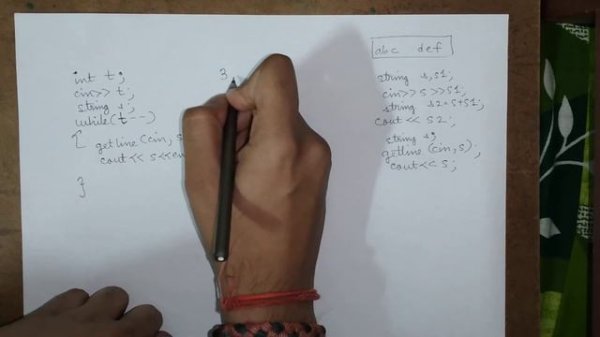 int t;
cin>> t;
string s;
while(t--)
{ getline(cin, s
cout << s<<en
}
3
abc def
string s,s1;
cin>>s>>s1;
string s2=s+s1;
cout << s2;
string s;
getline (cin,s);
cout<< s;